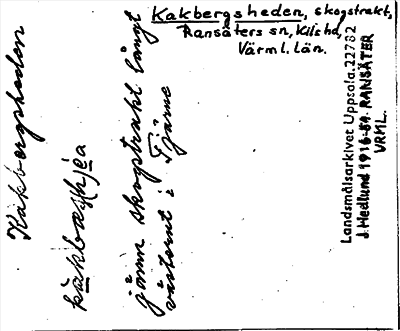 Kakbergsheden, skogstrakt,
Ransäters sn, Kils hd,
Värml. län.
Kakbergsheden
jämn skogstrakt långt
västerut i
Landsmålsarkivet Uppsala. 22782
J. Hedlund 1916-51. RANSÄTER
VRML.